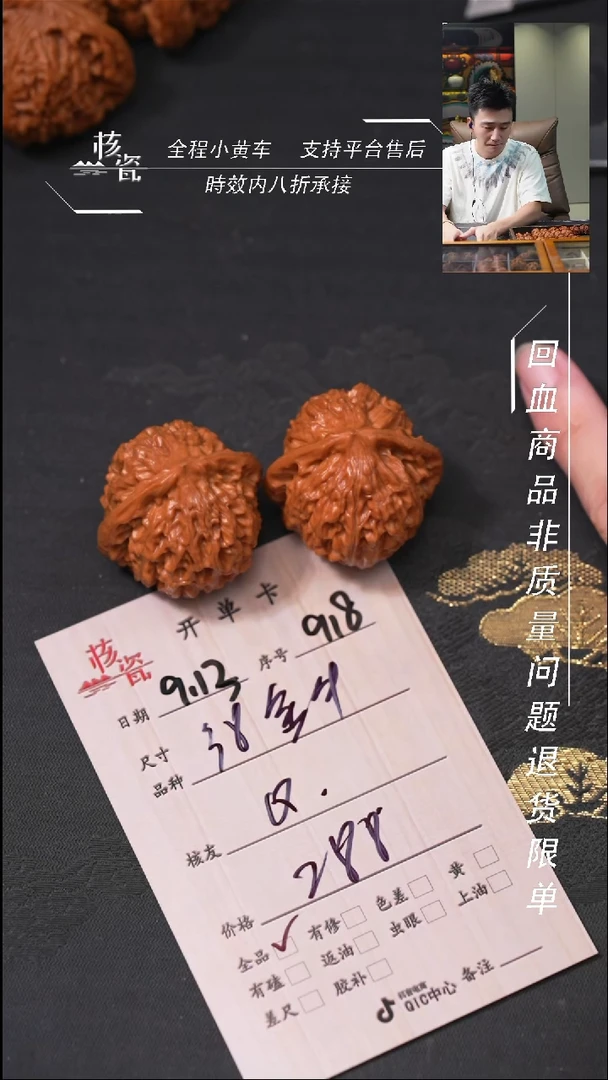 核瓷
全程小黄车 支持平台售后
時效内八折承接
回血商品非质量问题退货限单
开单卡
核瓷
日期 9.13 序号 918
尺寸
品种
核友 Q.
价格 288
全品 ✓ 有修 色差 黄
有磕 返油 虫眼 上油
差尺 胶补
抖音电商
QIC中心 备注